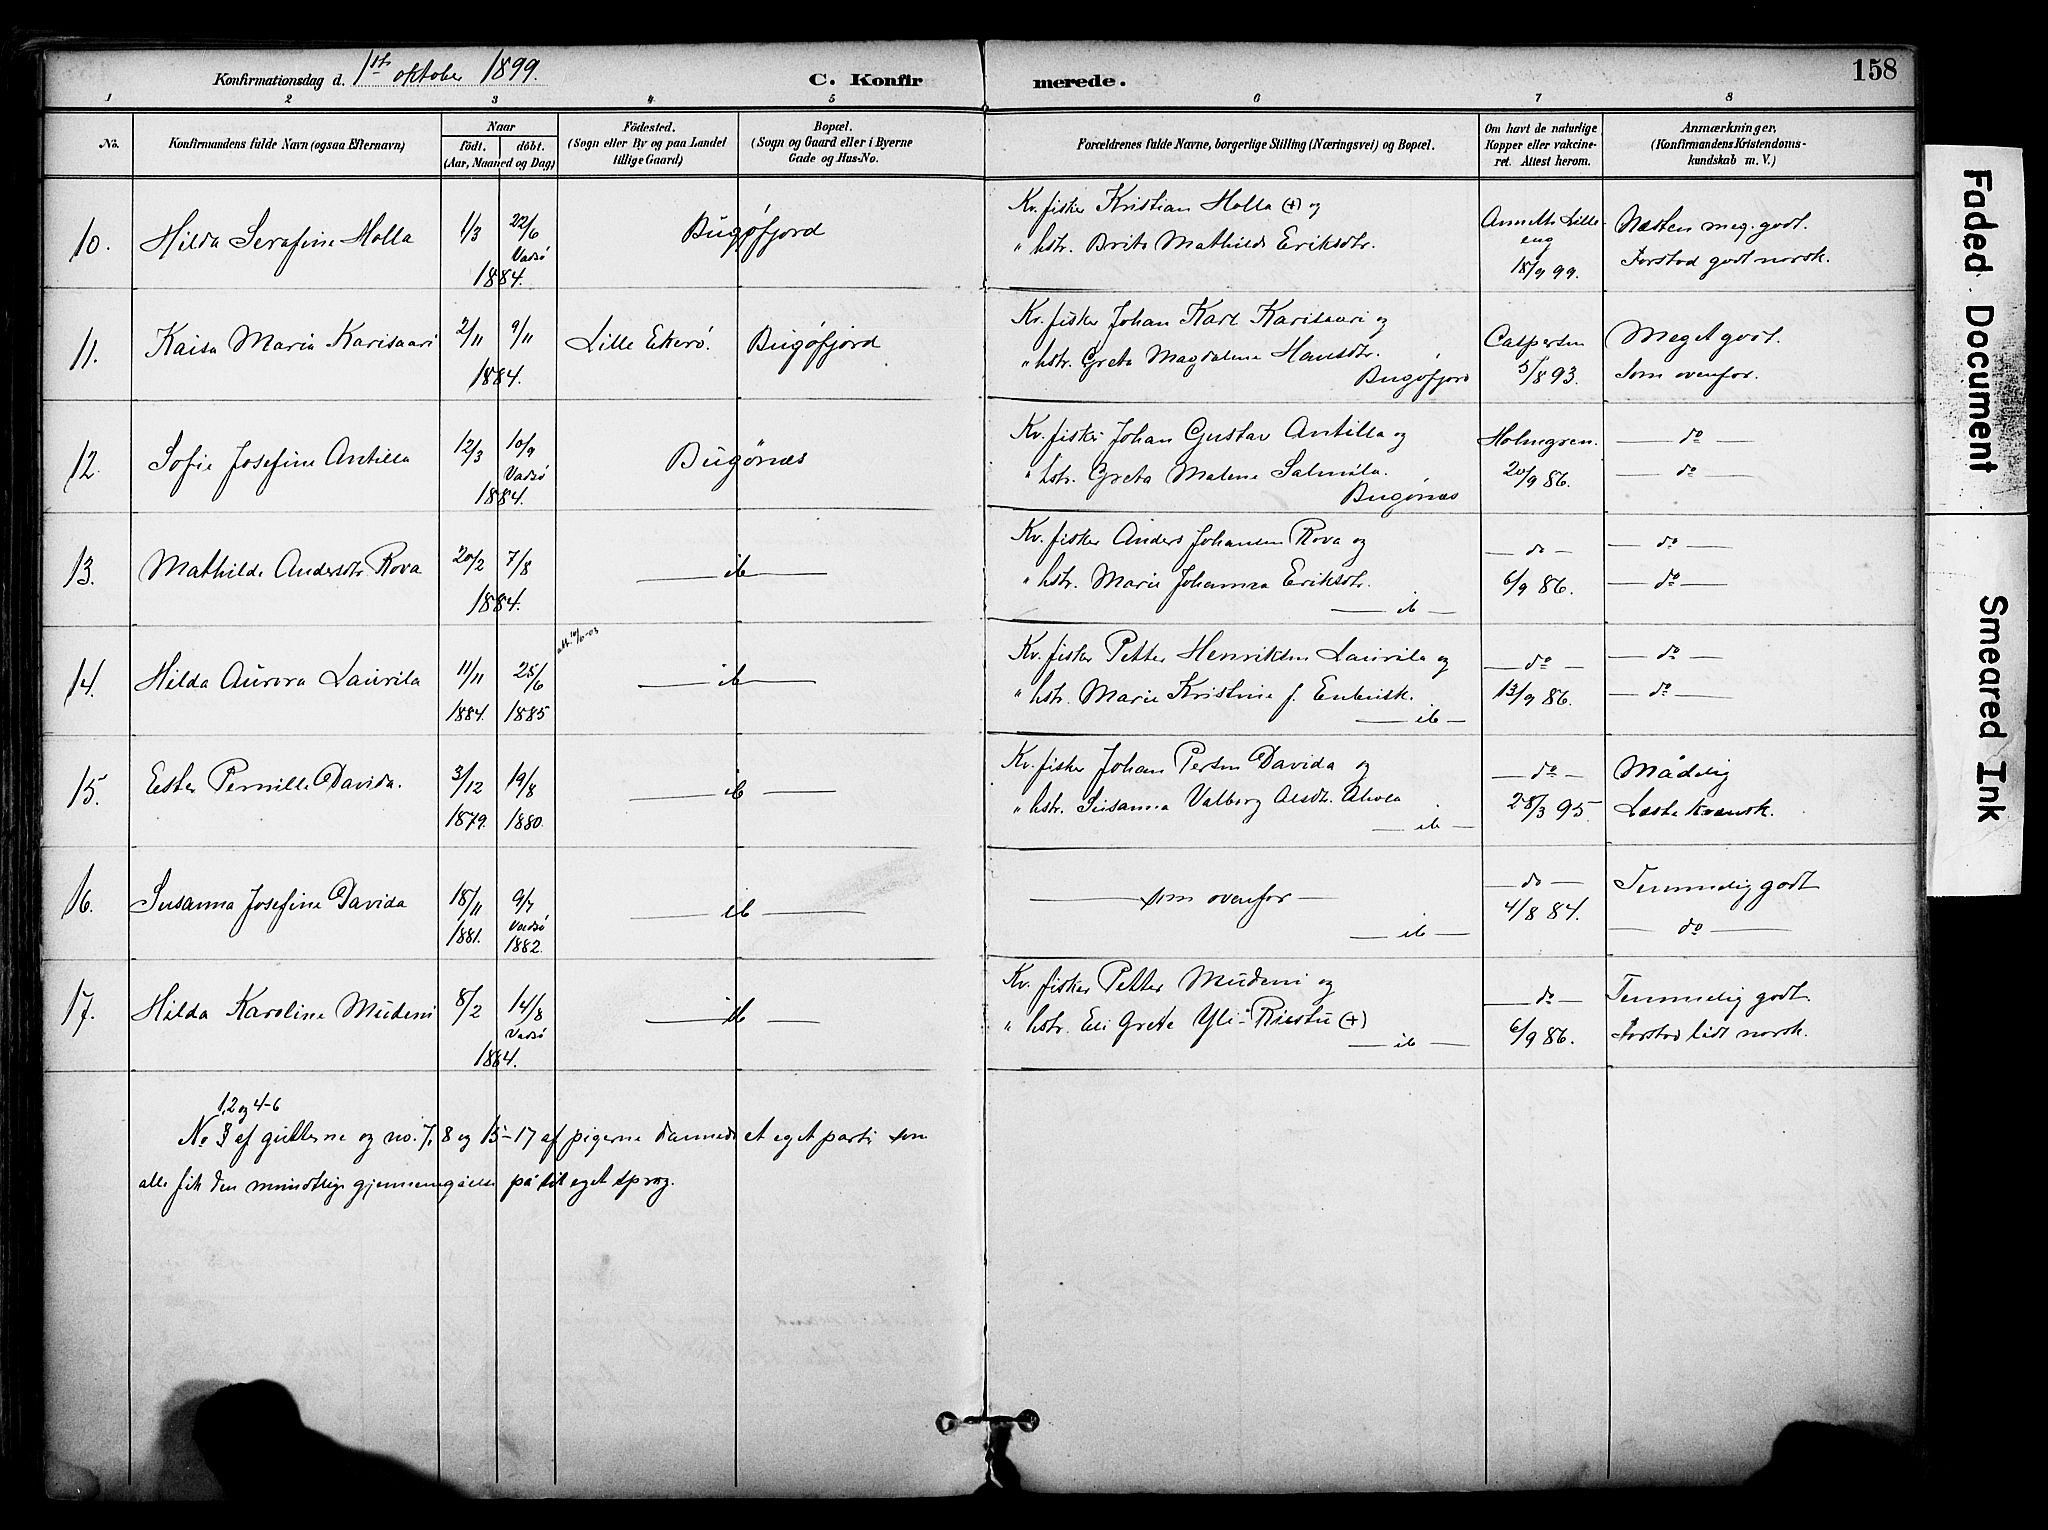 Konfirmationsdag d. 1ste oktober 1899.
C. Konfirmerede.
158
1 2 3 4 5 6 7 8
No.
Konfirmandens fulde Navn (ogsaa Efternavn)
Naar
födt. döbt.
(Aar, Maaned og Dag)
Födested.
(Sogn eller By og paa Landet
tillige Gaard)
Bopæl.
(Sogn og Gaard eller i Byerne
Gade og Hus-No.
Forældrenes fulde Navne, borgerlige Stilling (Næringsvei) og Bopæl.
Om havt de naturlige
Kopper eller vakcine-
ret. Attest herom.
Anmærkninger,
(Konfirmandens Kristendoms-
kundskab m. V.)
10. Hilda Serafine Holla 1/3 22/6 Vadsö 1884. Bugøfjord
Kv. fisker Kristian Holla (+) og
" hstr. Brita Mathilde Eriksdtr.
Anneth Lilleeng 18/9 99.
Næsten meg. godt.
Forstod godt norsk.
11. Kaisa Maria Karisaari 2/11 9/11 1884. Lille Ekerö. Bugøfjord
Kv. fisker Johan Karl Karisaari og
" hstr. Greta Magdalena Hansdtr.
Bugøfjord
Caspersen 5/8 93.
Meget godt.
Som ovenfor.
12. Sofie Josefine Antilla 12/3 10/9 Vadsö 1884. Bugönæs
Kv. fisker Johan Gustav Antilla og
" hstr. Greta Malene Salmila.
Bugönæs
Holmgren. 20/9 86.
do
do
13. Mathilde Andersdtr. Rova 20/2 7/8 1884. ib
Kv. fisker Anders Johansen Rova og
" hstr. Marie Johanna Eriksdtr.
ib
do 6/9 86.
do
do
14. Hilda Aurora Laurila 11/11 1884. 25/6 1885 ib
Kv. fisker Petter Henriksen Laurila og
" hstr. Marie Kristine f. Enbusk.
ib
do 13/9 86.
do
do
15. Ester Pernille Davida. 3/12 1879. 19/8 1880. ib
Kv. fisker Johan Persen Davida og
" hstr. Susanna Valborg
ib
do 28/3 95
Mådelig
Læste kvensk.
16. Susanna Josefine Davida 18/11 1881. 9/7 Vadsö 1882. ib
som ovenfor
ib
do 4/8 84.
Temmelig godt
do
17. Hilda Karoline Mudeni 8/2 14/8 Vadsö 1884. ib
Kv. fisker Petter Mudeni og
" hstr. Eli Greta Yli-Riestu (+)
ib
do 6/9 86.
Temmelig godt.
Forstod lidt norsk.
1, 2 og 4-6
No 3 af gutterne og no. 7, 8 og 15-17 af pigerne dannede et eget parti som
alle fik den mundtlige gjennemgåelse på sit eget sprog.
Faded Document
Smeared Ink